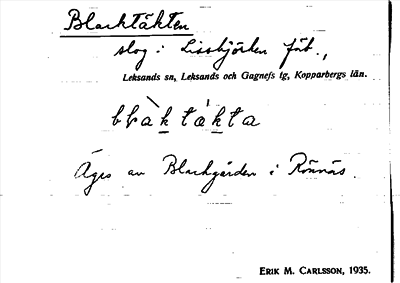 Blacktäkten
slog i Lissbjörken fäb.,
Leksands sn, Leksands och Gagnefs tg, Kopparbergs län.
Äges av Blackgården i Rönnäs.
ERIK M. CARLSSON, 1935.